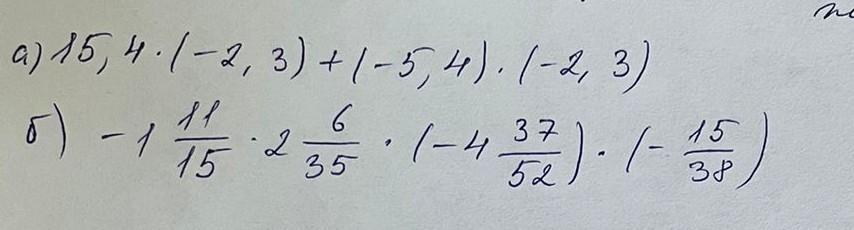 а) 15,4 · (-2,3) + (-5,4) · (-2,3)
б) -1 11/15 · 2 6/35 · (-4 37/52) · (- 15/38)